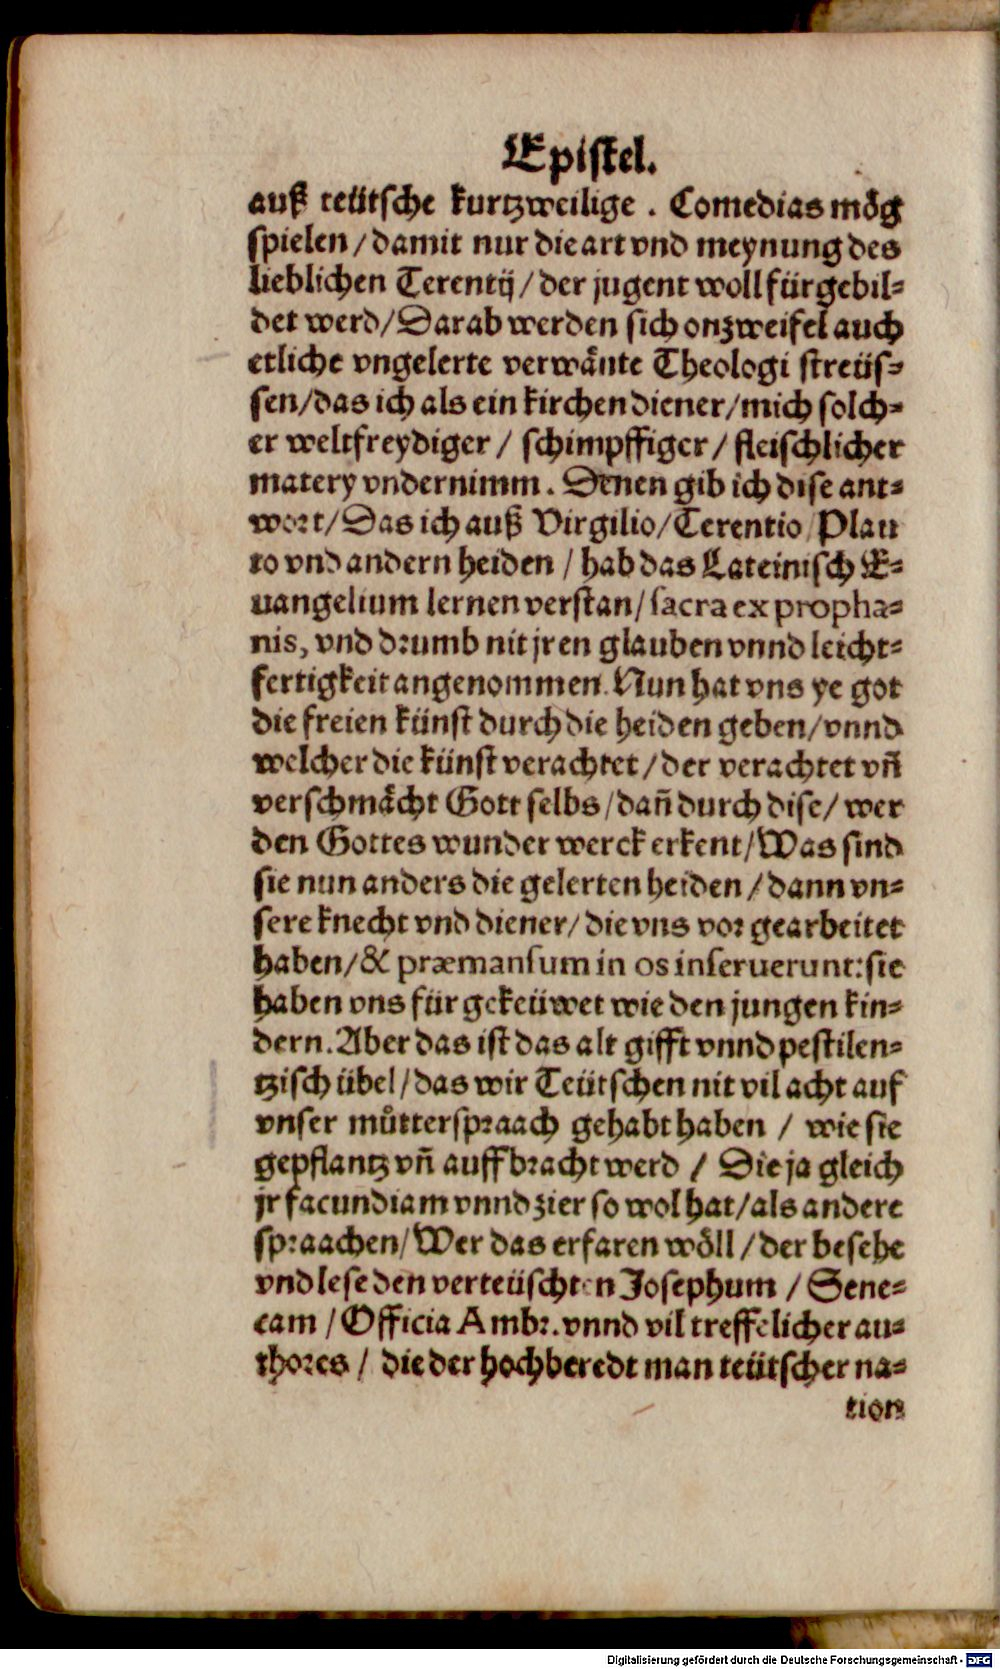 Epistel.
auß teütsche kurtzweilige . Comedias mög
spielen / damit nur die art vnd meynung des
lieblichen Terentij / der jugent woll fürgebil-
det werd / Darab werden sich onzweifel auch
etliche vngelerte verwänte Theologi streüs-
sen / das ich als ein kirchen diener / mich solch-
er weltfreydiger / schimpffiger / fleischlicher
matery vndernimm . Denen gib ich dise ant-
wort / Das ich auß Virgilio / Terentio / Plau
to vnd andern heiden / hab das Lateinisch E-
uangelium lernen verstan / sacra ex propha-
nis, vnd drumb nit jren glauben vnnd leicht-
fertigkeit angenommen. Nun hat vns ye got
die freien künst durch die heiden geben / vnnd
welcher die künst verachtet / der verachtet vñ
verschmächt Gott selbs / dañ durch dise / wer
den Gottes wunder werck erkent / Was sind
sie nun anders die gelerten heiden / dann vn-
sere knecht vnd diener / die vns vor gearbeitet
haben / & præmansum in os inseruerunt: sie
haben vns für gekeüwet wie den jungen kin-
dern. Aber das ist das alt gifft vnnd pestilen-
tzisch übel / das wir Teütschen nit vil acht auf
vnser můtterspraach gehabt haben / wie sie
gepflantz vñ auffbracht werd / Die ja gleich
jr facundiam vnnd zier so wol hat / als andere
spraachen / Wer das erfaren wöll / der besehe
vnd lese den verteüschten Josephum / Sene-
cam / Officia Ambr. vnnd vil treffelicher au-
thores / die der hochberedt man teütscher na-
tion
Digitalisierung gefördert durch die Deutsche Forschungsgemeinschaft - DFG